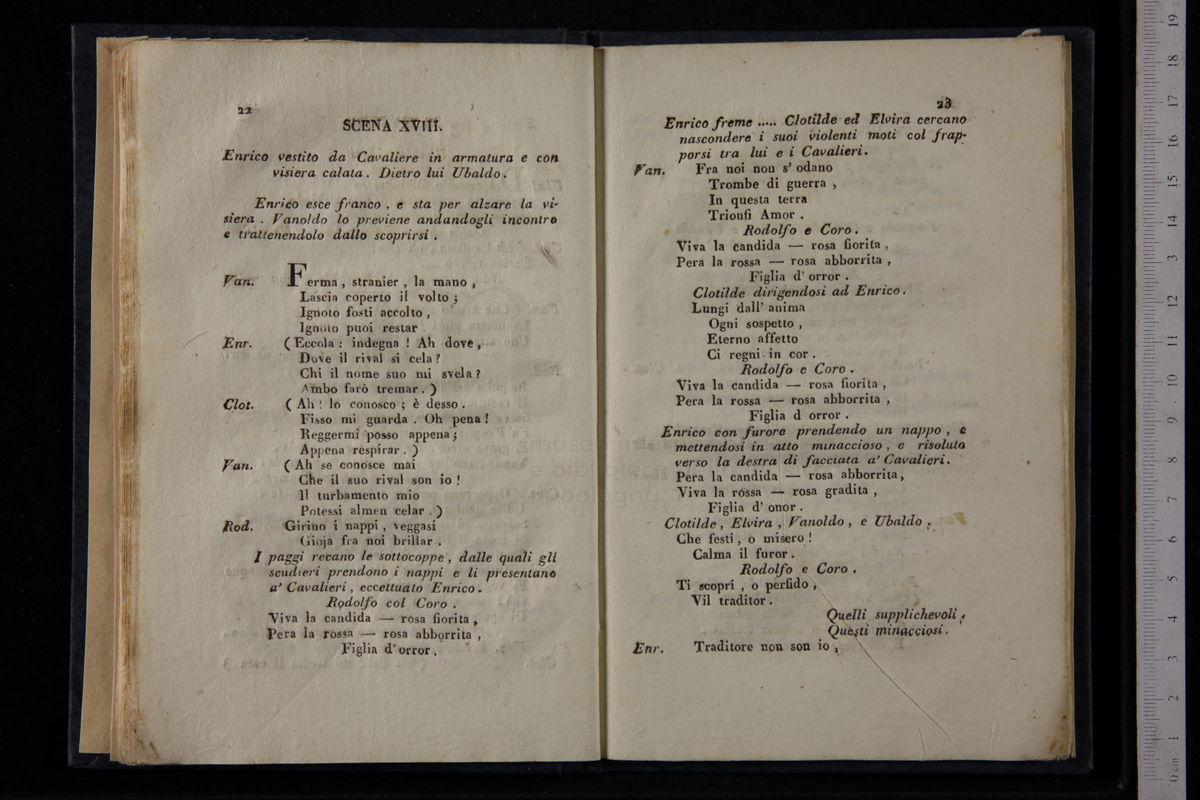 22
SCENA XVIII.
Enrico vestito da Cavaliere in armatura e con
visiera calata. Dietro lui Ubaldo.
Enrico esce franco, e sta per alzare la vi-
siera. Vanoldo lo previene andandogli incontro
e trattenendolo dallo scoprirsi.
Van. Ferma, stranier, la mano,
Lascia coperto il volto;
Ignoto fosti accolto,
Ignoto puoi restar
Enr. (Eccola: indegna! Ah dove,
Dove il rival si cela?
Chi il nome suo mi svela?
Ambo farò tremar.)
Clot. (Ah! lo conosco; è desso.
Fisso mi guarda. Oh pena!
Reggermi posso appena;
Appena respirar.)
Van. (Ah se conosce mai
Che il suo rival son io!
Il turbamento mio
Potessi almen celar.)
Rod. Girino i nappi, veggasi
Gioja fra noi brillar.
I paggi recano le sottocoppe, dalle quali gli
scudieri prendono i nappi e li presentano
a' Cavalieri, eccettuato Enrico.
Rodolfo col Coro.
Viva la candida — rosa fiorita,
Pera la rossa — rosa abborrita,
Figlia d'orror.
23
Enrico freme ..... Clotilde ed Elvira cercano
nascondere i suoi violenti moti col frap-
porsi tra lui e i Cavalieri.
Van. Fra noi non s' odano
Trombe di guerra,
In questa terra
Trionfi Amor.
Rodolfo e Coro.
Viva la candida — rosa fiorita,
Pera la rossa — rosa abborrita,
Figlia d' orror.
Clotilde dirigendosi ad Enrico.
Lungi dall' anima
Ogni sospetto,
Eterno affetto
Ci regni in cor.
Rodolfo e Coro.
Viva la candida — rosa fiorita,
Pera la rossa — rosa abborrita,
Figlia d orror.
Enrico con furore prendendo un nappo, e
mettendosi in atto minaccioso, e risoluto
verso la destra di facciata a' Cavalieri.
Pera la candida — rosa abborrita,
Viva la rossa — rosa gradita,
Figlia d' onor.
Clotilde, Elvira, Vanoldo, e Ubaldo.
Che festi, o misero!
Calma il furor.
Rodolfo e Coro.
Ti scopri, o perfido,
Vil traditor.
Quelli supplichevoli,
Questi minacciosi.
Enr. Traditore non son io,
0 cm 1 2 3 4 5 6 7 8 9 10 11 12 13 14 15 16 17 18 19